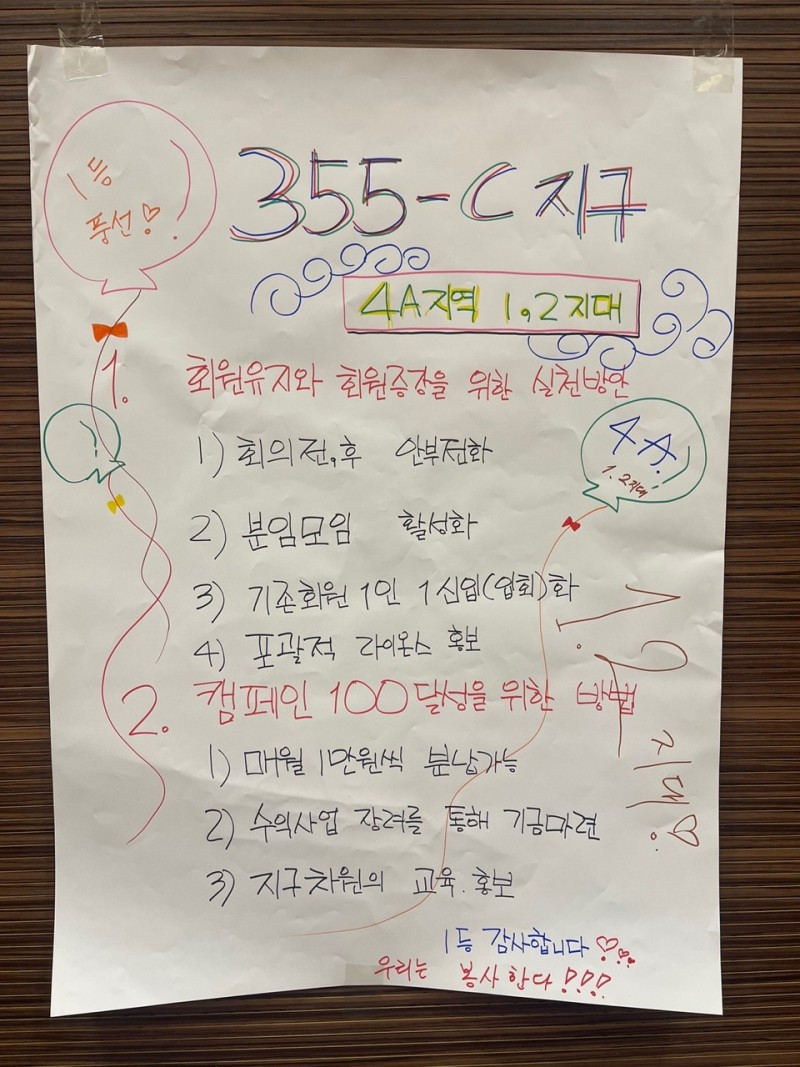 1등
풍선♡!
355-C 지구
4A지역 1,2지대
1. 회원유지와 회원증강을 위한 실천방안
1) 회의전,후 안부전화
2) 분임모임 활성화
3) 기존회원 1인 1신입(입회)화
4) 포괄적 라이온스 홍보
4A!
1.2지대!
2. 캠페인 100달성을 위한 방법
1) 매월 1만원씩 분납가능
2) 수익사업 장려를 통해 기금마련
3) 지구차원의 교육.홍보
지대♡
1등 감사합니다♡♡♡
우리는 봉사한다!!!